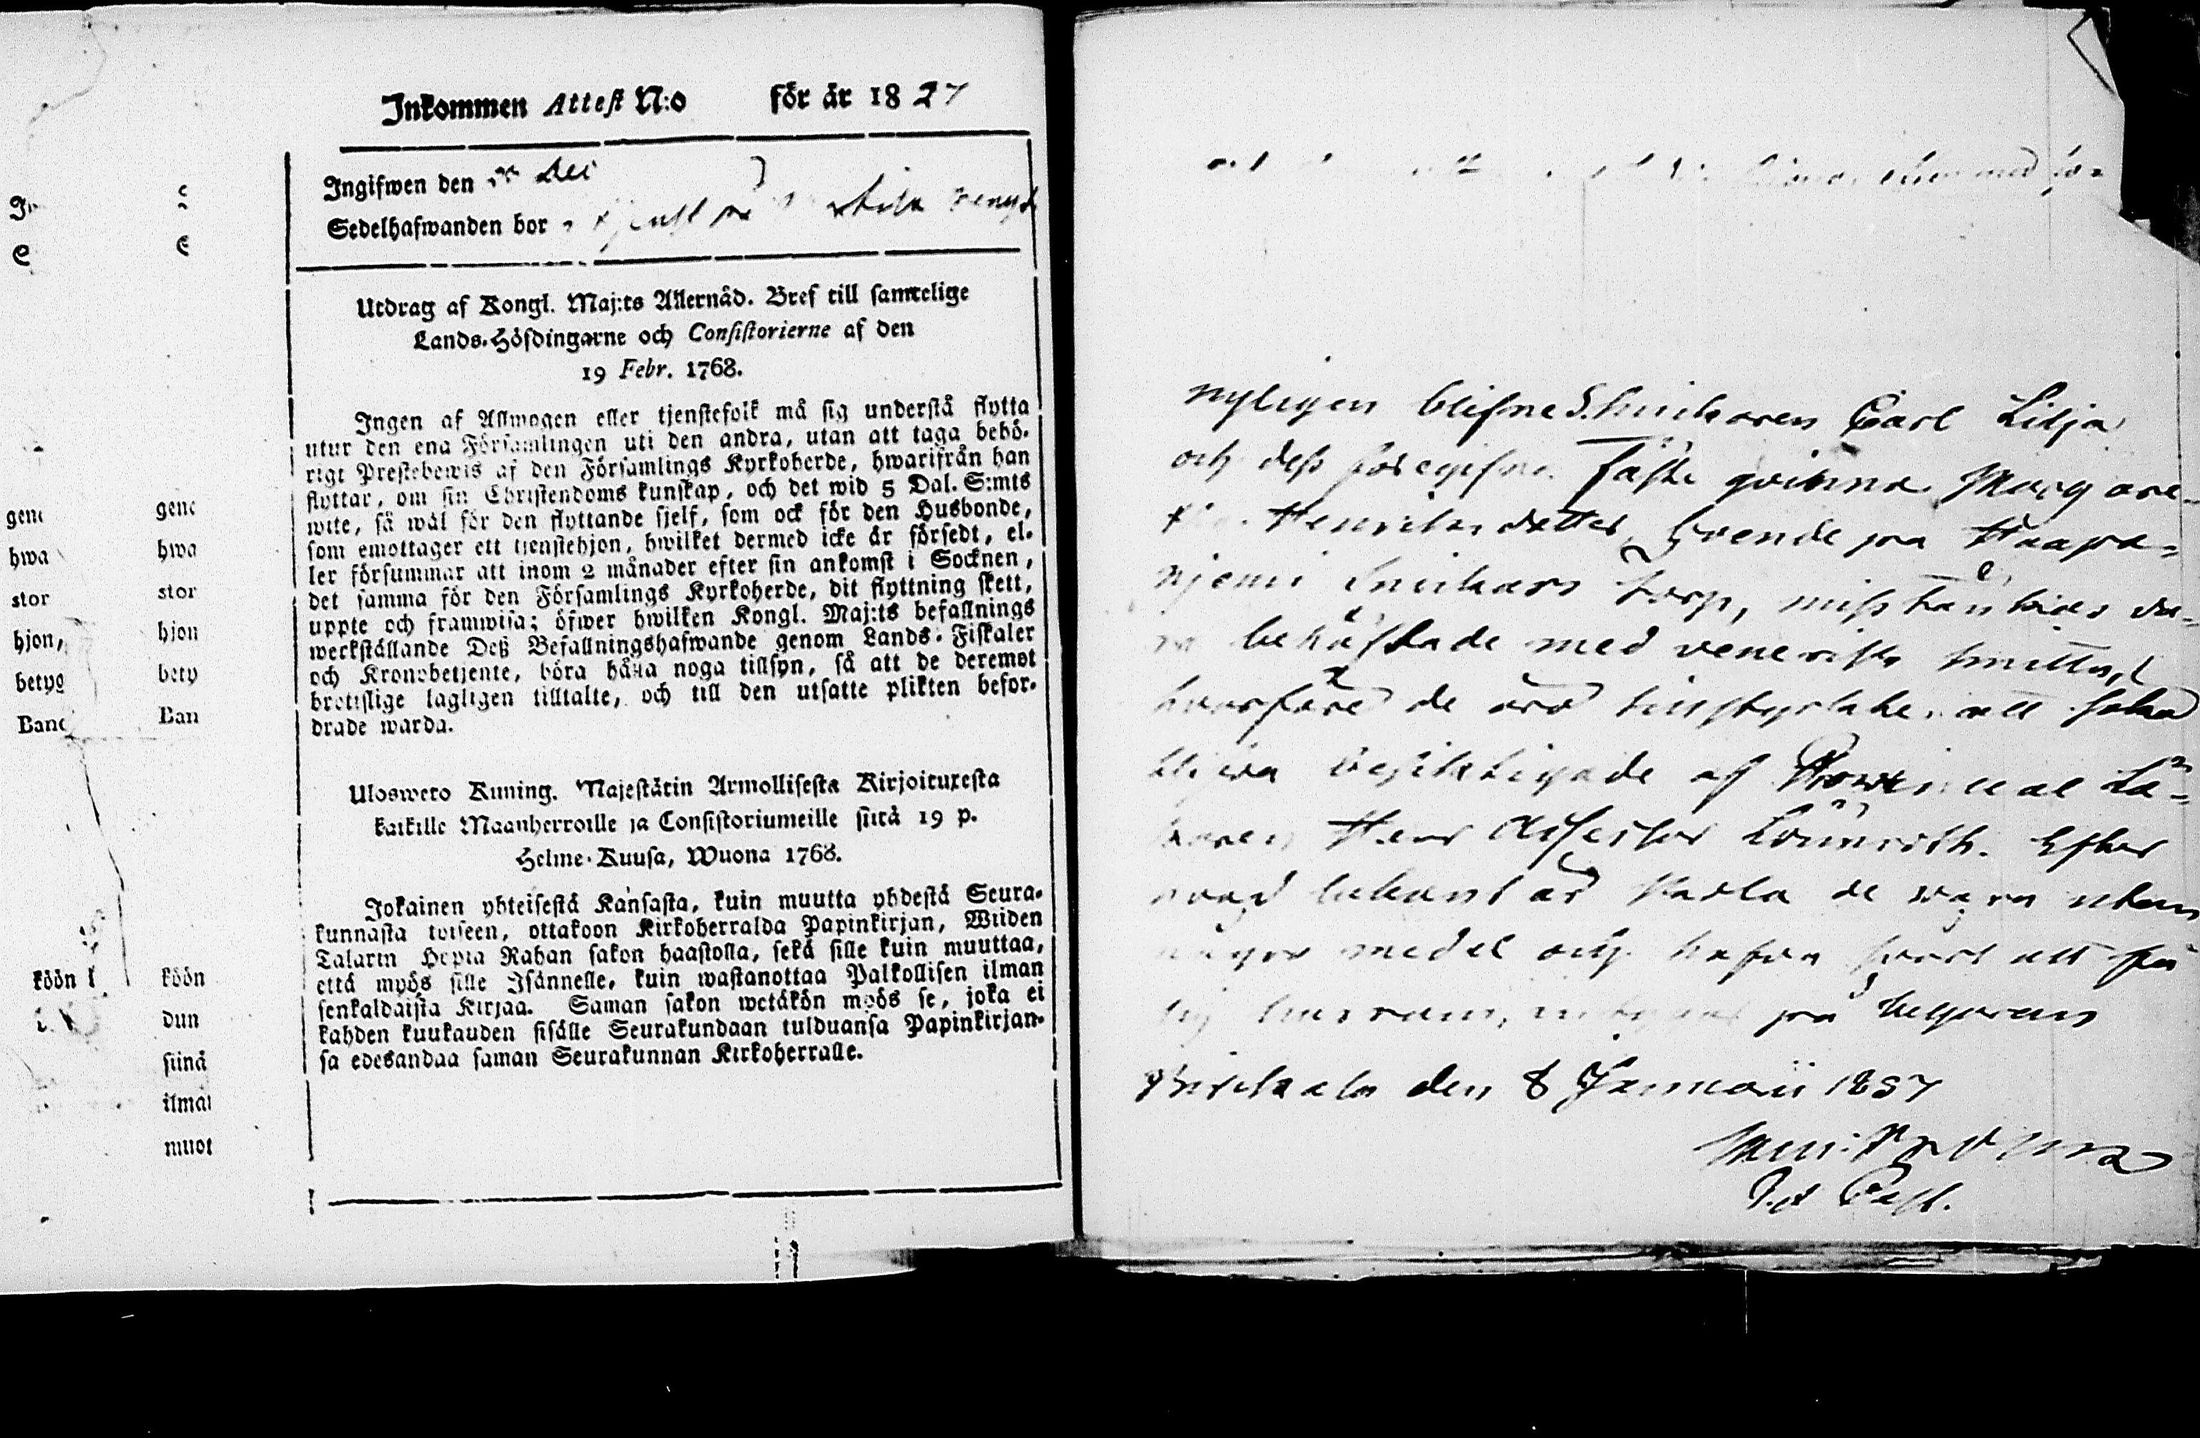 Inkommen Attest N:o för år 1827
Ingifwen den
Sedelhafwanden bor
Utdrag af Kongl. Maj:ts Allernåd. Bref till samtelige
Lands-Höfdingarne och Consistorierne af den
19 Febr. 1768.
Ingen af Allmogen eller tjenstefolk må sig understå flytta
utur den ena Församlingen uti den andra, utan att taga behö-
rigt Prestebewis af den Församlings Kyrkoherde, hwarifrån han
flyttar, om sin Christendoms kunskap, och det wid 5 Dal. S:mts
wite, så wäl för den flyttande sjelf, som ock för den Husbonde,
som emottager ett tjenstehjon, hwilket dermed icke är försedt, el-
ler försummar att inom 2 månader efter sin ankomst i Socknen,
det samma för den Församlings Kyrkoherde, dit flyttning skett,
uppte och framwisa; öfwer hwilken Kongl. Maj:ts befallnings
werkställande Deß Befallningshafwande genom Lands-Fiskaler
och Kronobetjente, böra hålla noga tillsyn, så att de deremot
brottslige lagligen tilltalte, och till den utsatte plikten befor-
drade warda.
Uloswето Kuning. Majestätin Armollisesta Kirjoituxesta
kaikille Maanherroille ja Consistoriumeille siitä 19 p.
Helme-Kuusa, Wuona 1768.
Jokainen yhteisestä Kansasta, kuin muutta yhdestä Seura-
kunnasta toiseen, ottakoon Kirkoherralda Papinkirjan, Wiiden
Talarin Hopia Rahan sakon haastolla, sekä sille kuin muuttaa,
että myös sille Isännelle, kuin wastanottaa Palkollisen ilman
senkaldaista Kirjaa. Saman sakon wetäkön myös se, joka ei
kahden kuukauden sisälle Seurakundaan tulduansa Papinkirjan-
sa edesandaa saman Seurakunnan Kirkoherralle.
gene gene
hwa hwa
stor stor
hjon, hjon
betyg bety
Bane Ban
köön köön
dun
siinä
ilmai
muot
nyligen blifne Snickaren Carl Lilja
och dess föregifne Fäste qvinna Margare-
Henricsdotter, boende på Haapa-
njemi Snickars torp, misstänkas va-
ra behäftade med venerisk smitta,
hvarföre de äro tillstyrckte att söka
blifva besiktigade af Provincial Lä-
karen Herr Assessor Lönnroth. Efter
hvad bekant är skola de vara utan
några medel och hafva svårt att få
sig husrum, på begäran
den 8 Januarii 1837